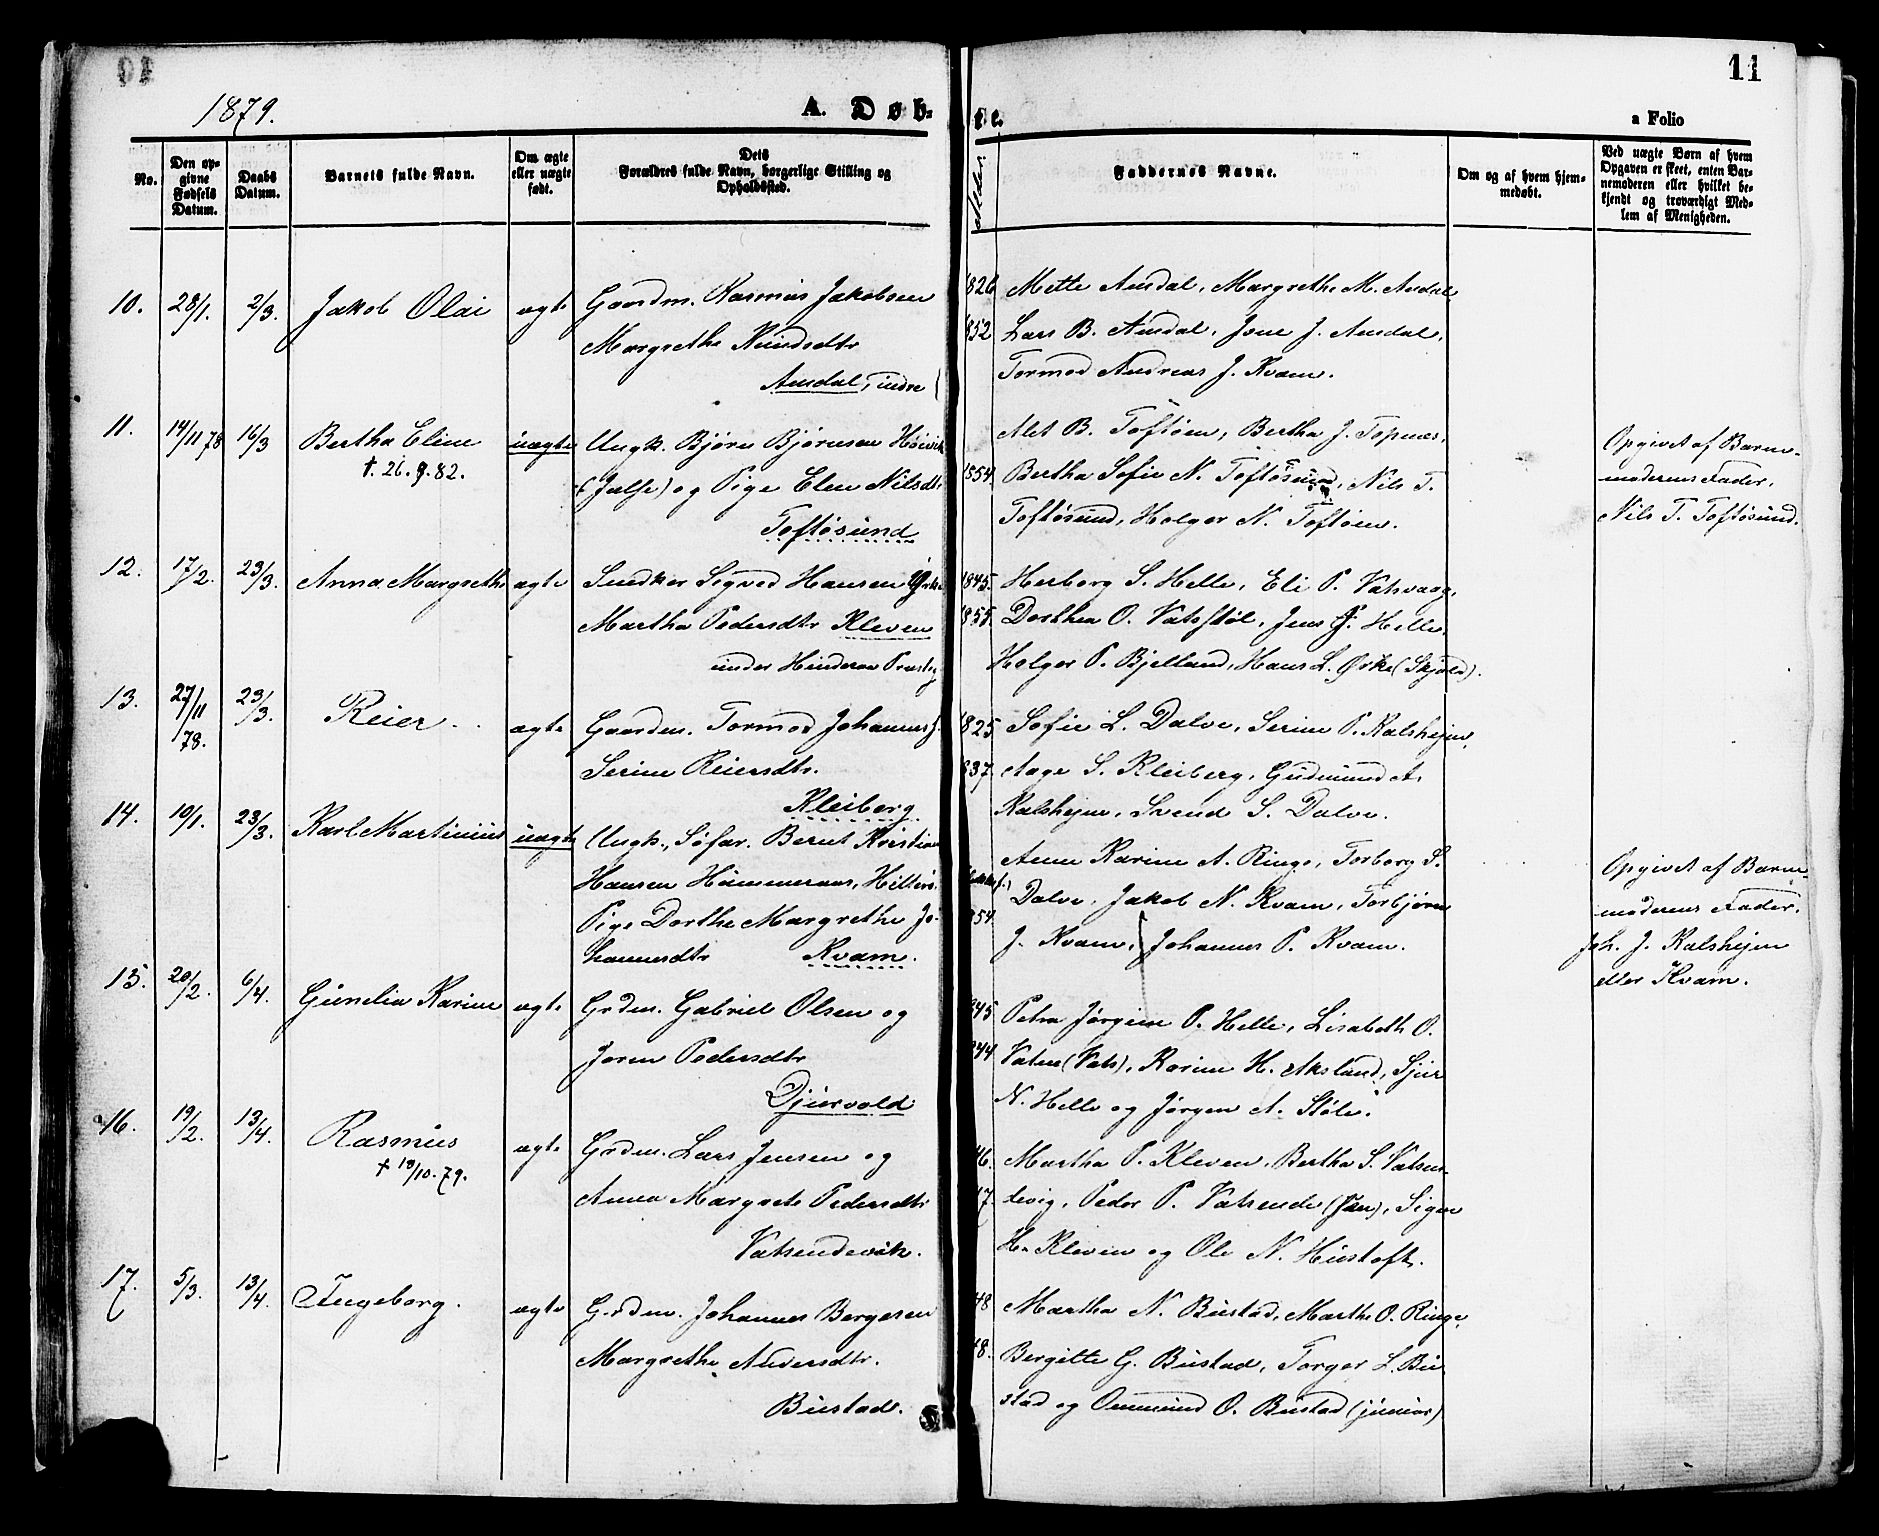 11
1879.
A. Døb-
te.
a Folio
No.
Den op-
givne
Fødsels
Datum.
Daabs
Datum.
Barnets fulde Navn.
Om ægte
eller uægte
født.
Dets
Forældres fulde Navn, borgerlige Stilling og
Opholdssted.
Faddernes Navne.
Om og af hvem hjem-
medøbt.
Ved uægte Børn af hvem
Opgaven er skeet, enten Bar-
nemoderen eller hvilket be-
kjendt og troværdigt Med-
lem af Menigheden.
10. 28/1. 2/3. Jakob Olai ægte Gaardm. Rasmus Jakobsen
Margrethe Knudsdtr
Amdal, indre
1826 Mette Amdal, Margrethe M. Amdal
1852 Lars B. Amdal, Jone J. Amdal,
Tormod Andreas J. Kvam.
11. 14/11 78 16/3 Bertha Eline uægte Ungk. Bjørn Bjørnsen Høivik
†. 26. 9. 82.
(Jælse) og Pige Elen Nilsdtr
Toftøsund
Alet B. Toftøen, Bertha J. Topnes,
1854. Bertha Sofie N. Toftøsund, Nils T.
Toftøsund, Holger N. Toftøen.
Opgivet af Barne-
moderens Fader,
Nils T. Toftøsund.
12. 17/2. 23/3. Anna Margrethe ægte Snedker Sigved Hansen Ørke
Martha Pedersdtr Kleven
under Hinderaa Præsteg
1845. Herborg S. Helle, Eli P. Vatsvaag,
1855. Dorthea O. Vatsstøl, Jens J. Helle,
Holger P. Bjelland, Hans L. Ørke (Skjold).
13. 27/11 78. 23/3. Reier. ægte Gaardm. Tormod Johannes
Serine Reiersdtr.
Kleiberg
1825 Sofie L. Dalve, Serine P. Kalshejen,
837. Aage S. Kleiberg, Gudmund A.
Kalshejen, Svend S. Dalve.
14. 10/1. 23/3. Karl Martinius uægte Ungk., Søfar. Bernt Kristian
Hansen Hammeraas, Hitterø.
Pige Dorthe Margrethe Jo-
hannesdtr Kvam.
Anne Karine A. Ringe, Torborg S.
Dalve, Jakob N. Kvam, Torbjørn
54 J. Kvam, Johannes P. Kvam.
Opgivet af Barne-
moderens Fader.
Joh. J. Kalshejen
eller Kvam.
15. 20/2. 6/4. Gunelia Karine ægte Grdm. Gabriel Olsen og
Joren Pedersdtr
Djupvold
845 Petra Jørgine P. Helle, Lisabeth O.
844 Vatne (Vats), Karine H. Aksland, Sjur
N. Helle og Jørgen A. Støle.
16. 19/2. 13/4. Rasmus ægte Grdm. Lars Jensen og
† 18/10. 79.
Anna Margrete Pedersdtr
Vatsendevik.
46. Martha P. Kleven, Bertha S. Vatsen-
47. devig, Peder P. Vatsende (Jun), Sigve
H. Kleven og Ole N. Hustoft.
17. 5/3. 13/4. Ingeborg. ægte Grdm. Johannes Bergesen
Margrethe Andersdtr.
Bustad.
48 Martha N. Bustad, Marthe O. Ringe,
48. Bergitte G. Bustad, Torger L. Bu-
stad og Ommund O. Bustad (junior)